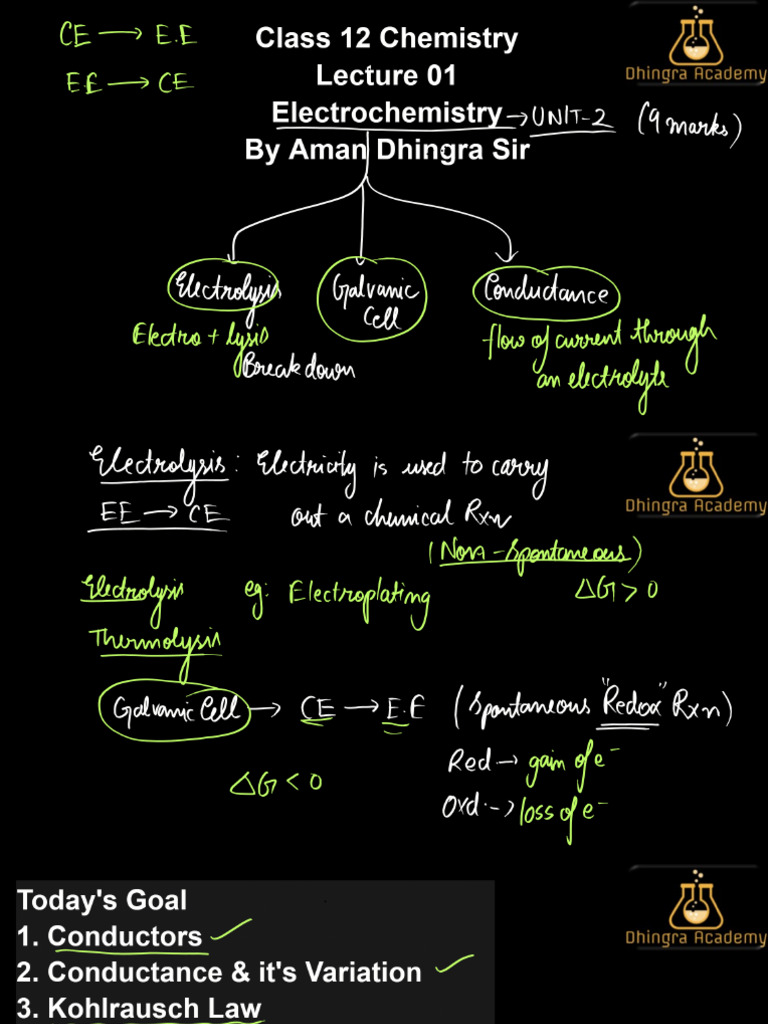 CE → E.E
EE → CE
Class 12 Chemistry
Lecture 01
Electrochemistry → UNIT-2 (9 marks)
By Aman Dhingra Sir
Dhingra Academy
Electrolysis Galvanic Cell Conductance
Electro + lysis
Breakdown
flow of current through
an electrolyte
Electrolysis: Electricity is used to carry
EE → CE out a chemical Rxn
Dhingra Academy
(Non-Spontaneous)
Electrolysis eg: Electroplating ΔG > 0
Thermolysis
Galvanic Cell → CE → E.E (Spontaneous "Redox" Rxn)
Red → gain of e⁻
ΔG < 0
Oxd. → loss of e⁻
Today's Goal
1. Conductors
Dhingra Academy
2. Conductance & it's Variation
3. Kohlrausch Law